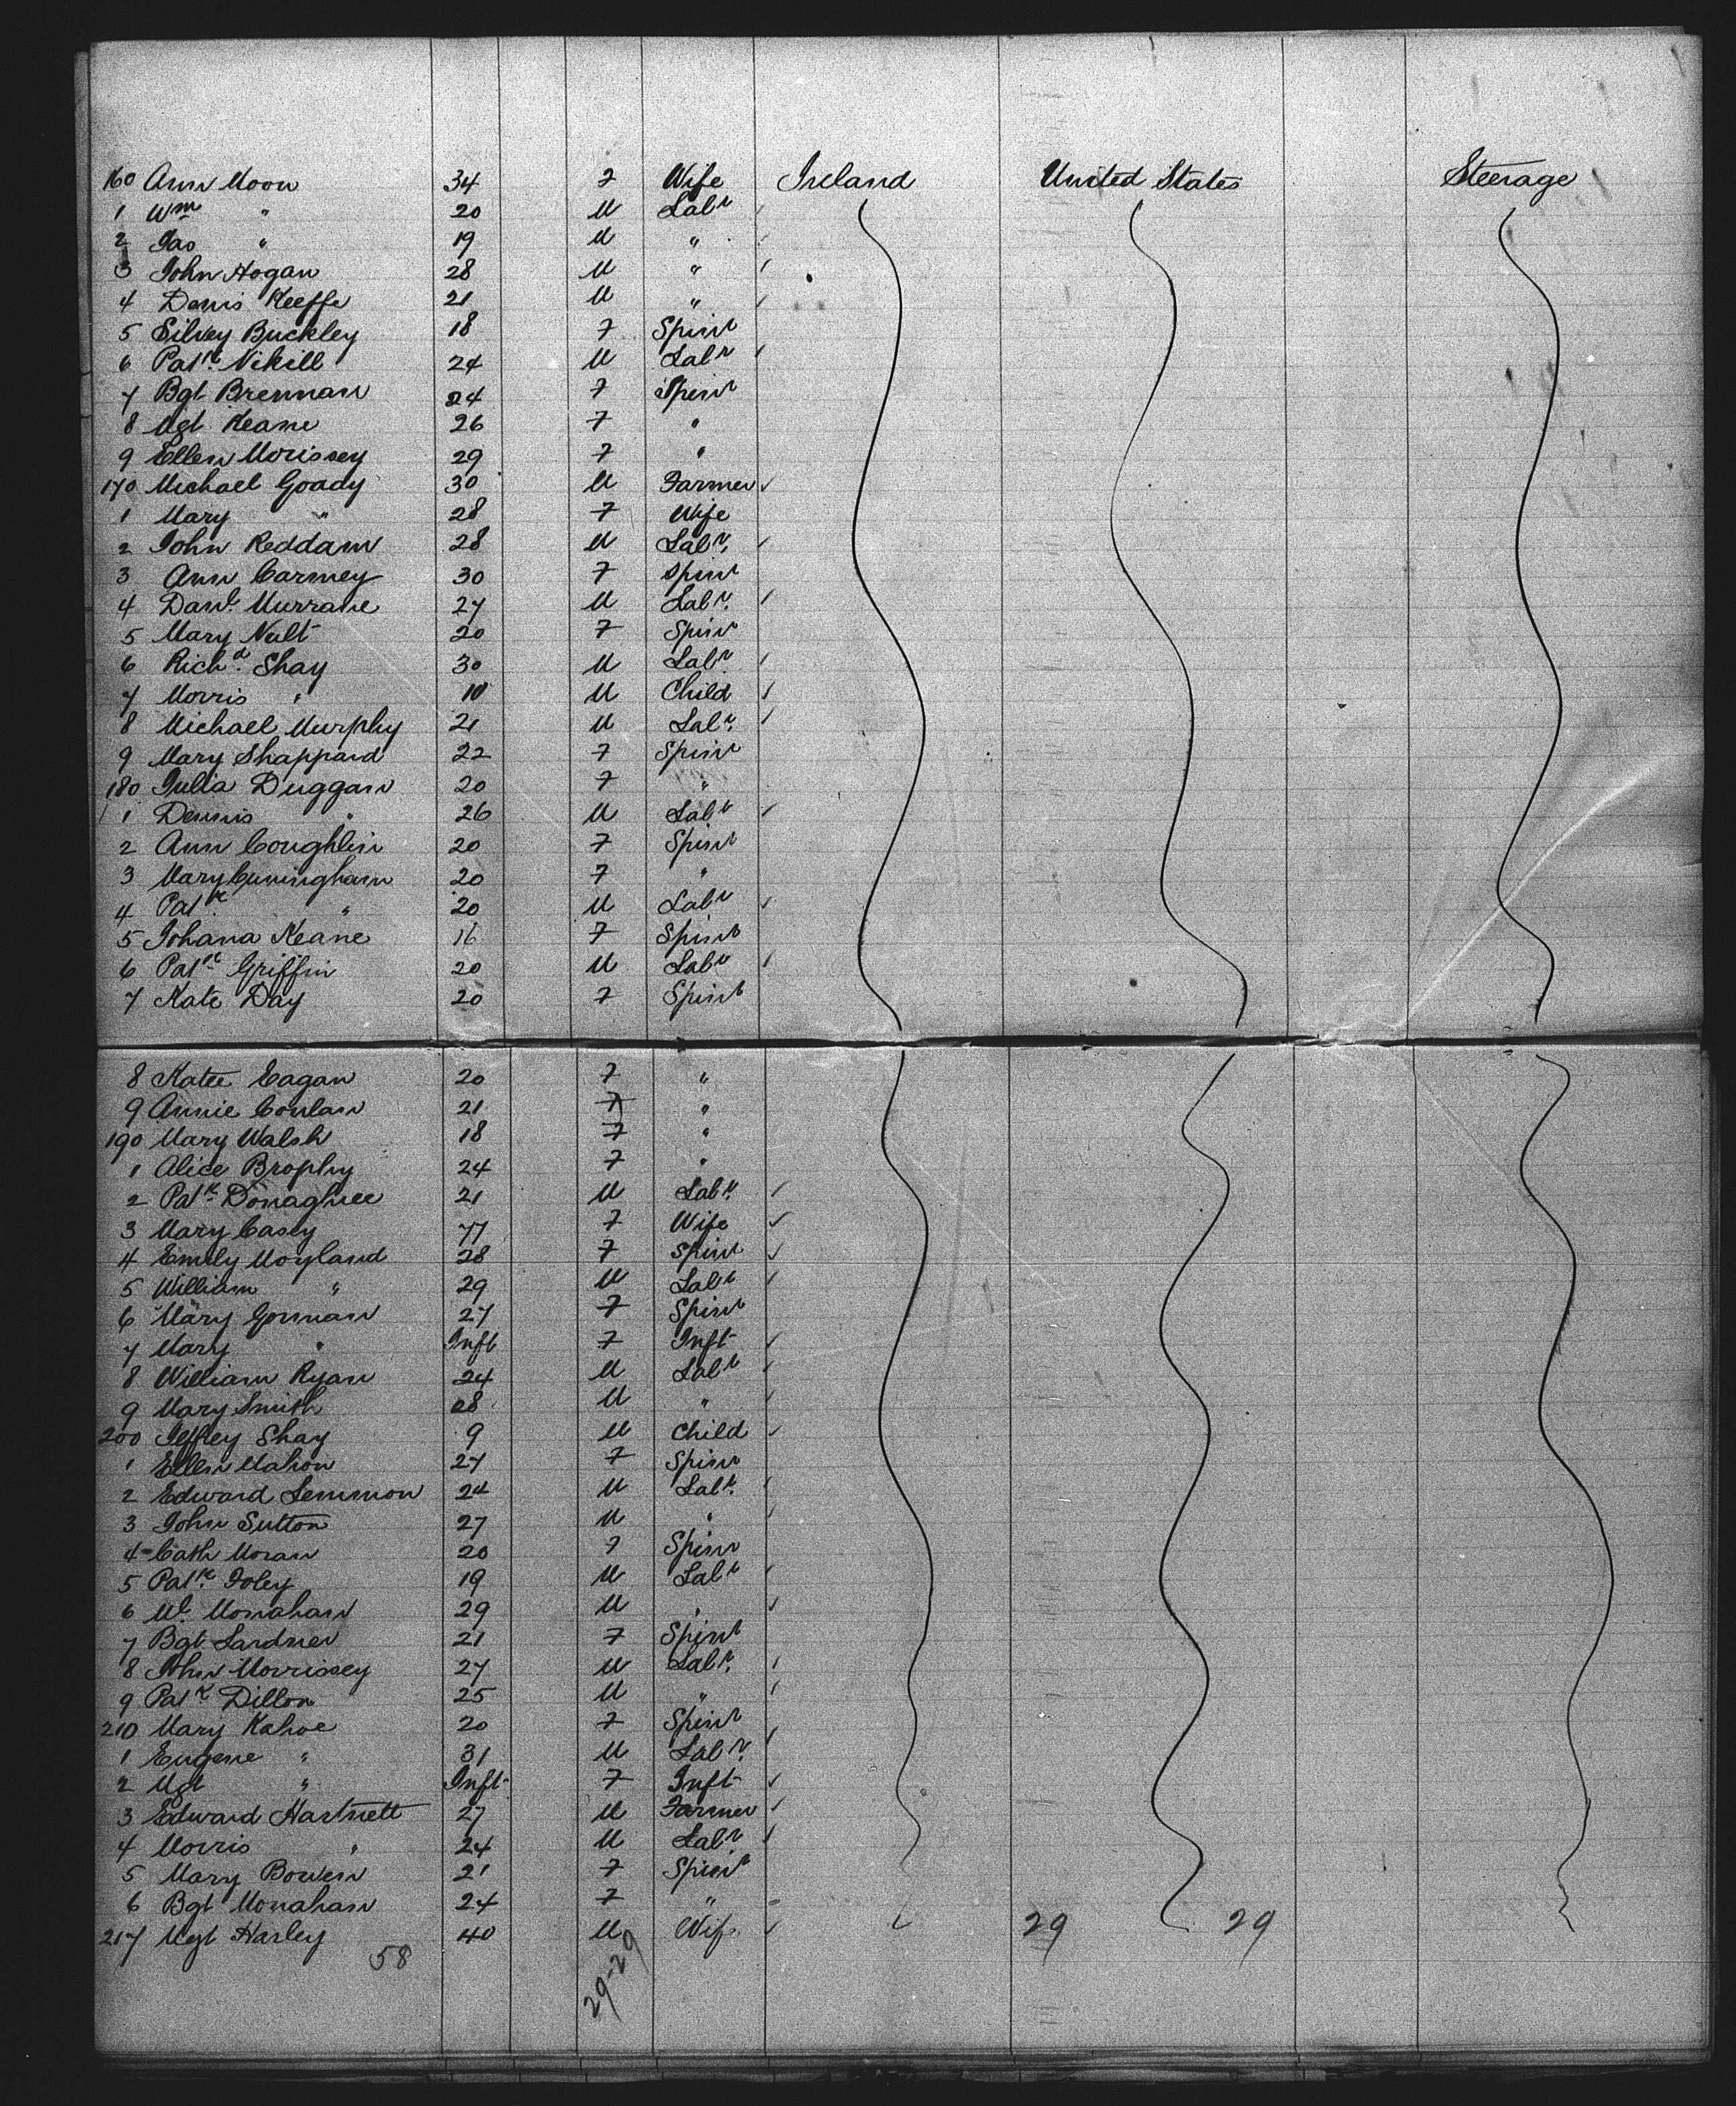 160 Ann Moon 34 F Wife Ireland United States Steerage
1 Wm " 20 M Labr
2 Jas " 19 M "
3 John Hogan 28 M "
4 Denis Keeffe 21 M "
5 Silvey Buckley 18 F Spinr
6 Patk Nihill 24 M Labr
7 Bgt Brennan 24 F Spinr
8 Mgt Keane 26 F "
9 Ellen Morissey 29 F "
170 Michael Goady 30 M Farmer
1 Mary " 28 F Wife
2 John Reddam 28 M Labr
3 Ann Carmey 30 F Spinr
4 Danl Murrane 27 M Labr
5 Mary Nult 20 F Spinr
6 Richd Shay 30 M Labr
7 Morris " 10 M Child
8 Michael Murphy 21 M Labr
9 Mary Shappard 22 F Spinr
180 Julia Duggan 20 F "
1 Dennis " 26 M Labr
2 Ann Coughlin 20 F Spinr
3 Mary Cuningham 20 F "
4 Patk " 20 M Labr
5 Johana Keane 16 F Spinr
6 Patk Griffin 20 M Labr
7 Kate Day 20 F Spinr
8 Katee Eagan 20 F "
9 Annie Conlan 21 F "
190 Mary Walsh 18 F "
1 Alice Brophy 24 F "
2 Patk Donaghue 21 M Labr
3 Mary Casey 77 F Wife
4 Emily Moyland 28 F Spinr
5 William " 29 M Labr
6 Mary Gorman 27 F Spinr
7 Mary " Inft F Inft
8 William Ryan 24 M Labr
9 Mary Smith 28 M "
200 Jeffley Shay 9 M Child
1 Ellen Mahon 27 F Spinr
2 Edward Lemmon 24 M Labr
3 John Sutton 27 M "
4 Cath Moran 20 F Spinr
5 Patk Foley 19 M Labr
6 Ml Monahan 29 M "
7 Bgt Lardner 21 F Spinr
8 John Morrissey 27 M Labr
9 Patk Dillon 25 M "
210 Mary Kahoe 20 F Spinr
1 Eugene " 31 M Labr
2 Mgt " Inft F Inft
3 Edward Hartnett 27 M Farmer
4 Morris " 24 M Labr
5 Mary Bowen 21 F Spinr
6 Bgt Monahan 24 F "
217 Mgt Harley 40 M Wife 29 29
58 29-29